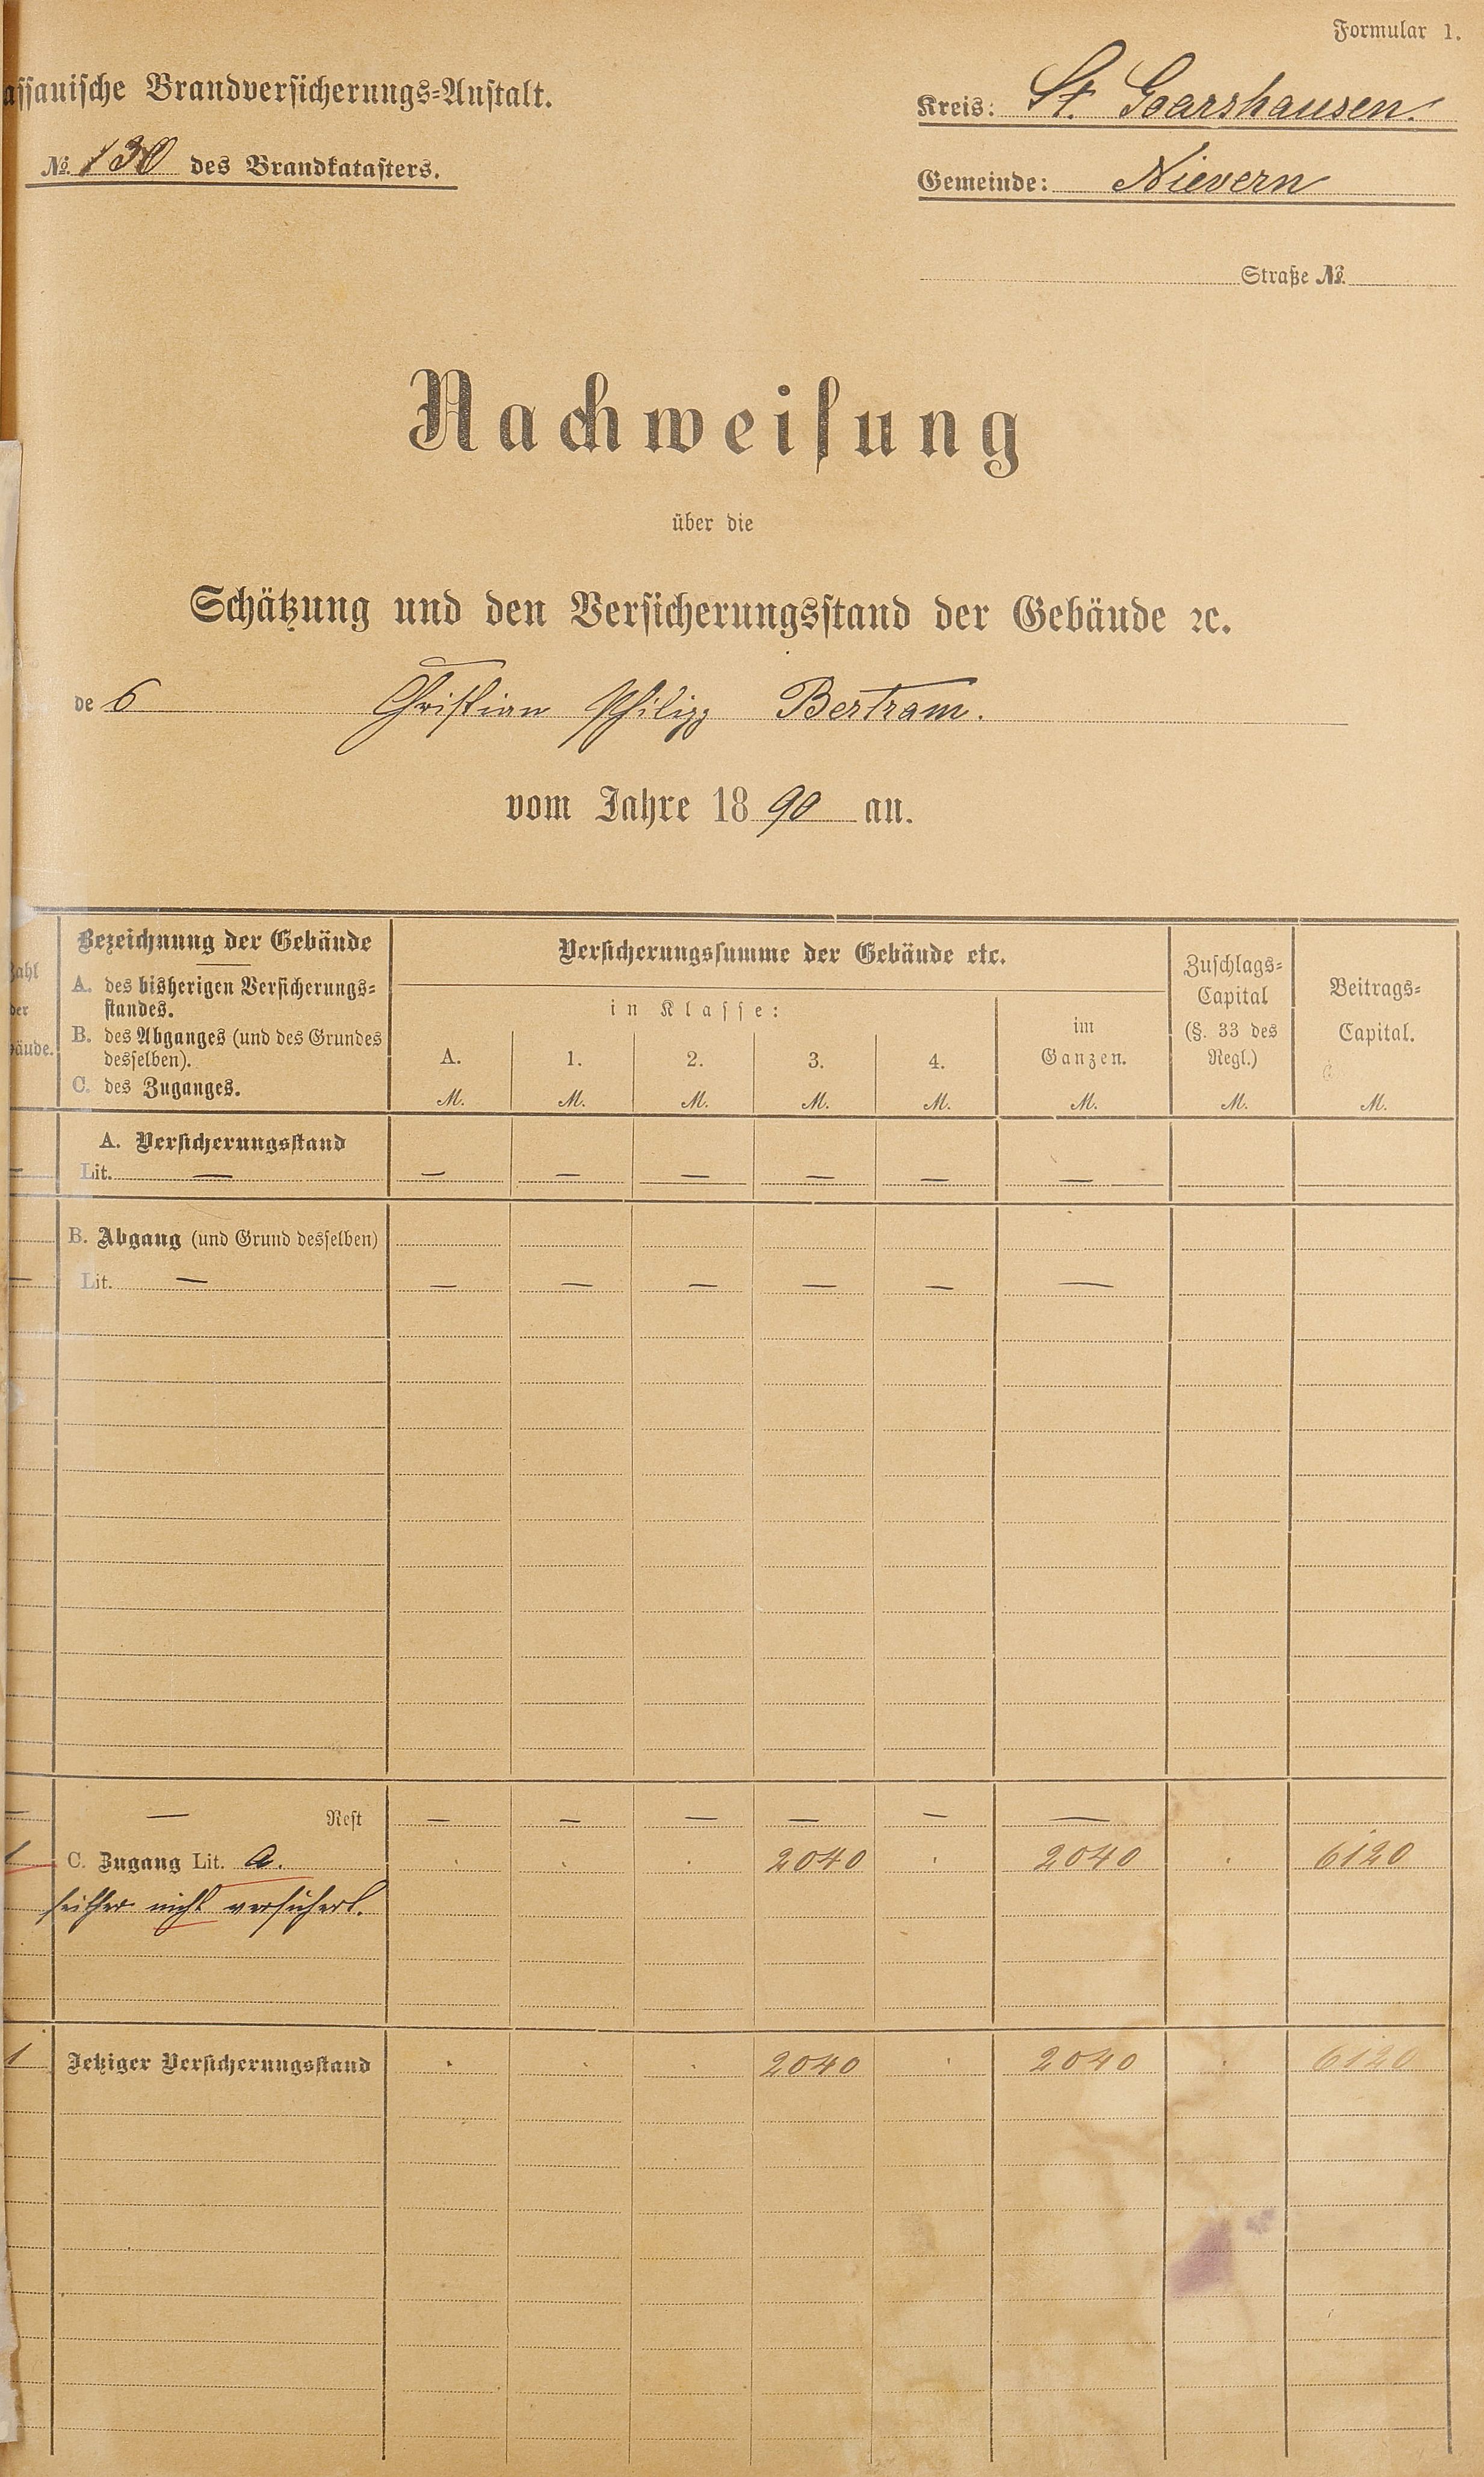 Formular 1.
assauische Brandversicherungs-Anstalt.
Kreis: St. Goarshausen.
№ 130 des Brandkatasters.
Gemeinde: Nievern
Straße №
Nachweisung
über die
Schätzung und den Versicherungsstand der Gebäude ꝛc.
des Christian Philipp Bertram.
vom Jahre 1890 an.
Zahl der bäude.
Bezeichnung der Gebäude
A. des bisherigen Versicherungs-
standes.
B. des Abganges (und des Grundes
desselben).
C. des Zuganges.
Versicherungssumme der Gebäude etc.
in Klasse:
A. 1. 2. 3. 4.
im
Ganzen.
Zuschlags-
Capital
(§. 33 des
Regl.)
Beitrags-
Capital.
M. M. M. M. M. M. M. M.
A. Versicherungsstand
— Lit. — — — — — — —
B. Abgang (und Grund desselben)
— Lit. — — — — — — —
— — Rest — — — — — —
1 C. Zugang Lit. a. . . . 2040 . 2040 . 6120
seither nicht versichert.
1 Jetziger Versicherungsstand . . . 2040 . 2040 . 6120